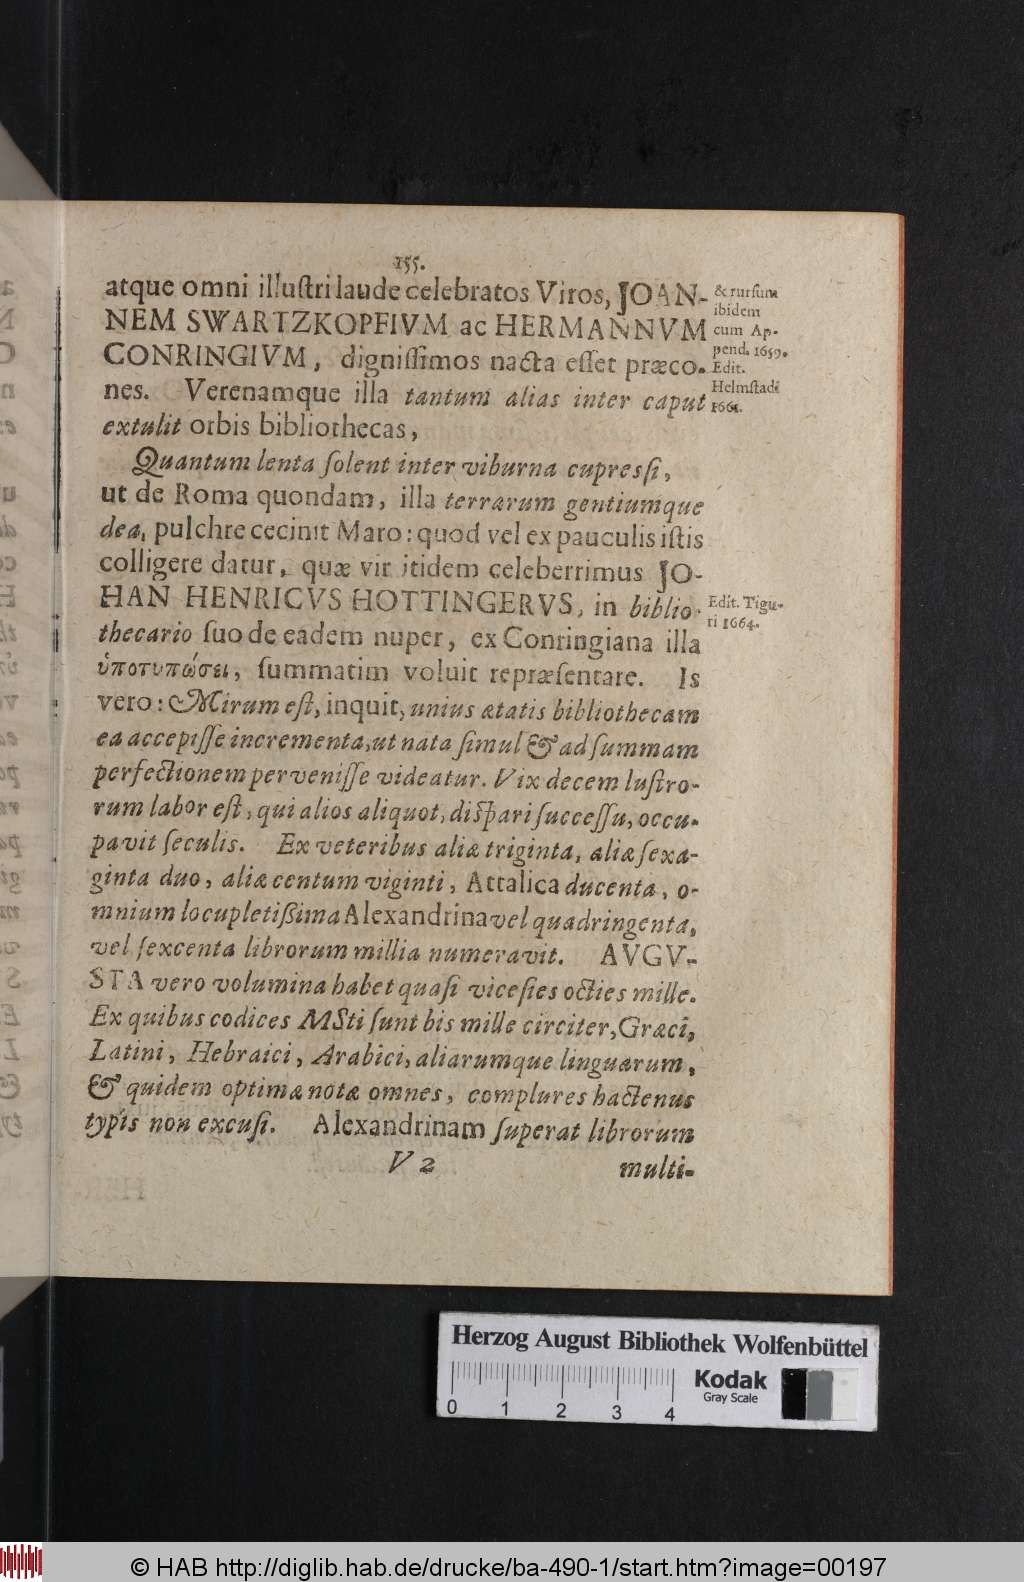 155.
atque omni illuſtri laude celebratos Viros, JOAN-
NEM SWARTZKOPFIVM ac HERMANNVM
CONRINGIVM, digniſſimos nacta eſſet præco-
nes. Verenamque illa tantum alias inter caput
extulit orbis bibliothecas,
Quantum lenta ſolent inter viburna cupreſſi,
ut de Roma quondam, illa terrarum gentiumque
dea, pulchre cecinit Maro: quod vel ex pauculis iſtis
colligere datur, quæ vir itidem celeberrimus JO-
HAN HENRICVS HOTTINGERVS, in biblio-
thecario ſuo de eadem nuper, ex Conringiana illa
ὑποτυπώσει, ſummatim voluit repræſentare. Is
vero: Mirum eſt, inquit, unius ætatis bibliothecam
ea accepiſſe incrementa, ut nata ſimul & ad ſummam
perfectionem perveniſſe videatur. Vix decem luſtro-
rum labor eſt, qui alios aliquot, diſpari ſucceſſu, occu-
pavit ſeculis. Ex veteribus aliæ triginta, aliæ ſexa-
ginta duo, aliæ centum viginti, Attalica ducenta, o-
mnium locupletißima Alexandrina vel quadringenta,
vel ſexcenta librorum millia numeravit. AVGV-
STA vero volumina habet quaſi viceſies octies mille.
Ex quibus codices MSti ſunt bis mille circiter, Græci,
Latini, Hebraici, Arabici, aliarumque linguarum,
& quidem optimæ notæ omnes, complures hactenus
typis non excuſi. Alexandrinam ſuperat librorum
V 2
multi-
& rurſum
ibidem
cum Ap-
pend. 1659.
Edit.
Helmſtadi
1661.
Edit. Tigu-
ri 1664.
Herzog August Bibliothek Wolfenbüttel
Kodak
Gray Scale
0 1 2 3 4
© HAB http://diglib.hab.de/drucke/ba-490-1/start.htm?image=00197